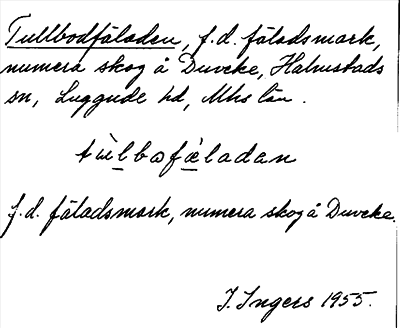 Tullbodfäladen, f.d. fäladsmark,
numera skog å Duveke, Halmstads
sn, Luggude hd, Mhs län.
tùlbofèladan
f.d. fäladsmark, numera skog å Duveke.
I. Ingers 1955.